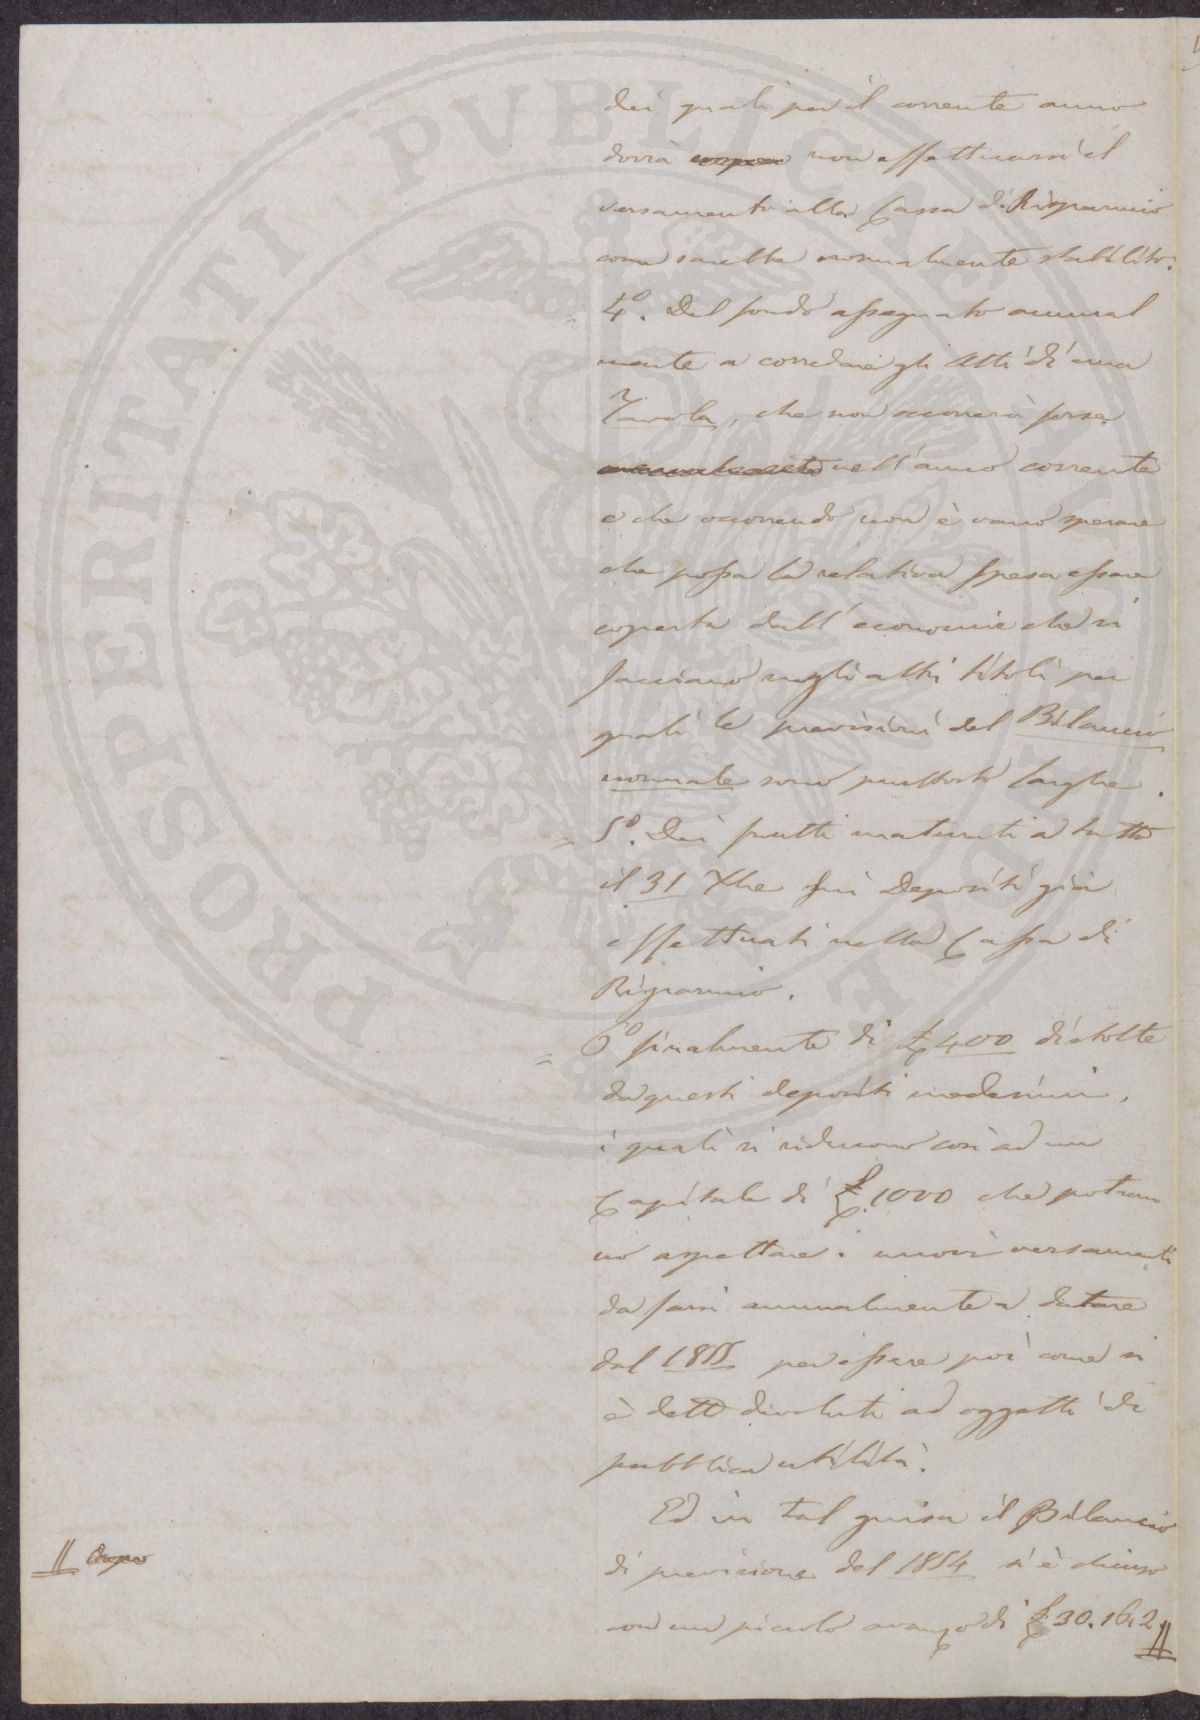 dei quali per il corrente anno
dovrà non effettuarsi il
versamento alla Cassa di Risparmio
come sarebbe normalmente stabilito.
= 4°. Del fondo assegnato annual
mente a corredare gli Atti di una
Tavola, che non occorrerà forse
nell'anno corrente
e che occorrendo non è vano sperare
che possa la relativa spesa essere
coperta dall'economie che si
facciano negli altri titoli pei
quali le previsioni del Bilancio
normale sono piuttosto larghe.
= 5°. Dei frutti maturati a tutto
il 31 Xbre sui Depositi già
effettuati nella Cassa di
Risparmio.
= 6° finalmente di £ 400 distolte
da questi depositi medesimi,
i quali si riducono così ad un
Capitale di £. 1000 che potran
no aspettare i nuovi versamenti
da farsi annualmente a datare
dal 1855 per essere poi come si
è detto devoluti ad oggetti di
pubblica utilità.
Ed in tal guisa il Bilancio
di previsione del 1854 si è chiuso
con un piccolo avanzo di £ 30.16.2.
//
// Dopo
PROSPERITATI PUBLICAE AUGENDAE